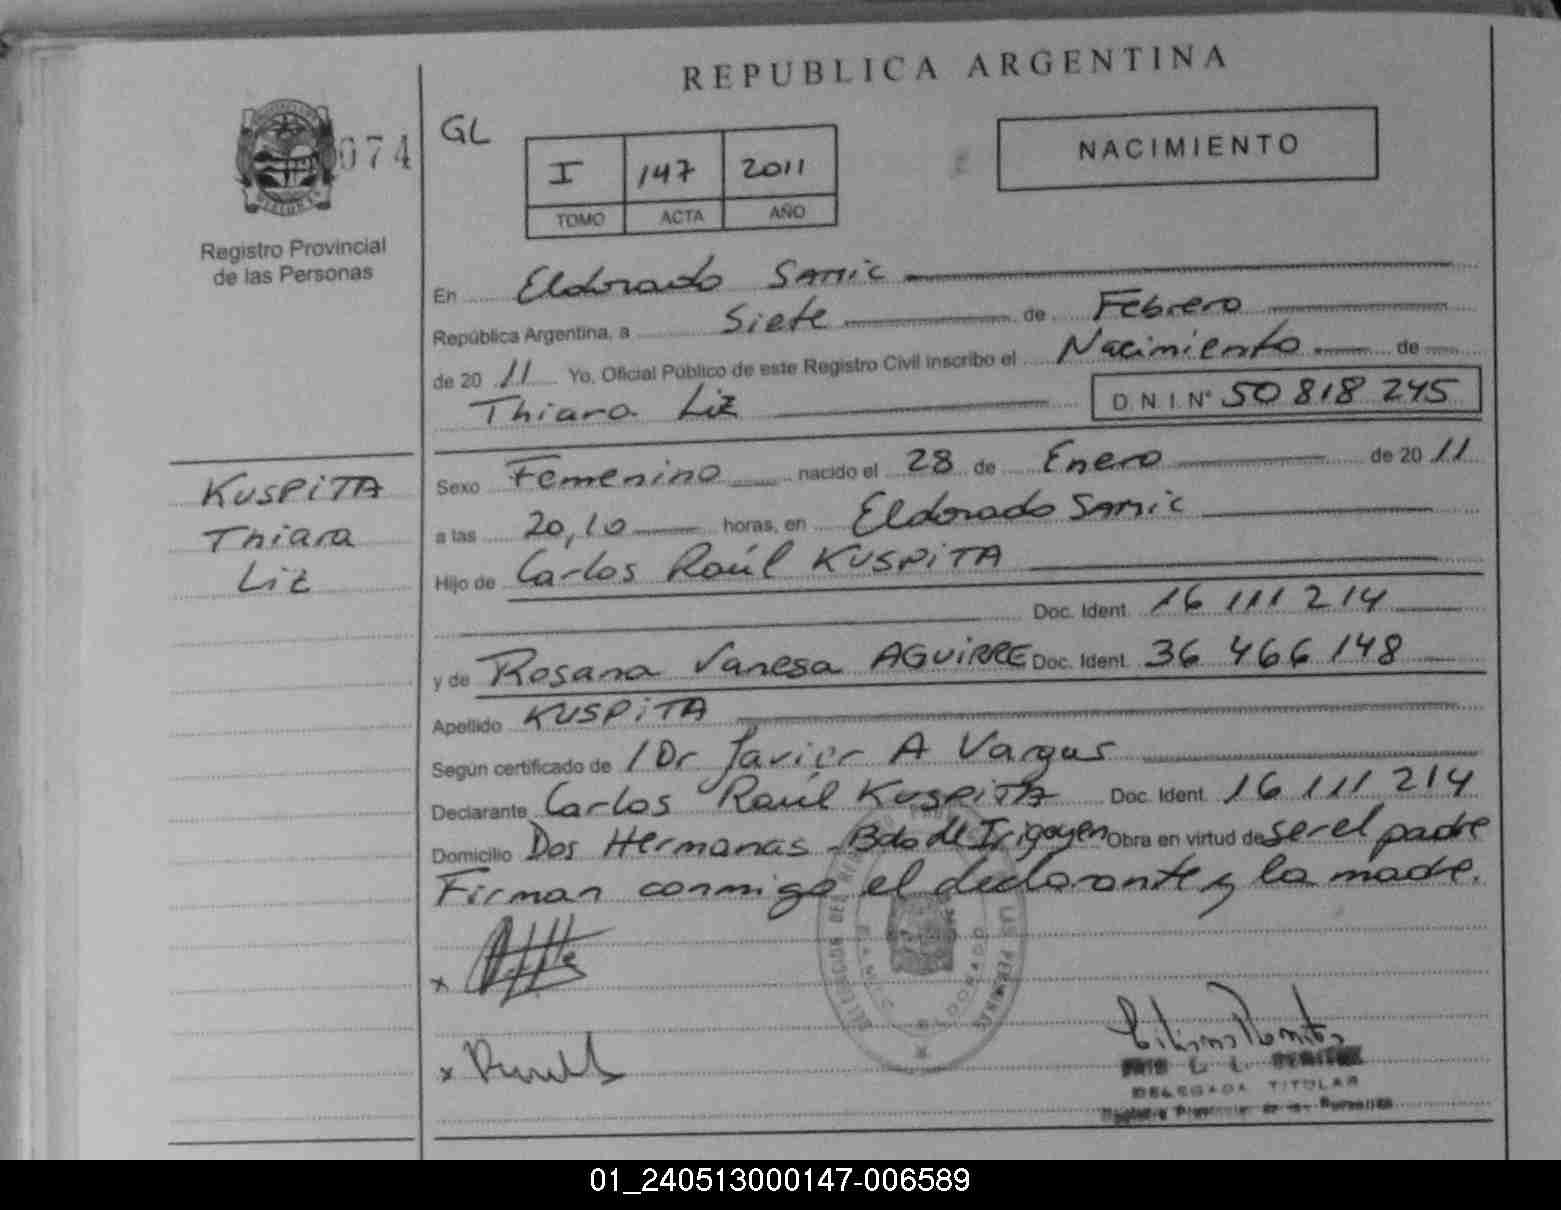 REPUBLICA ARGENTINA
074
GL
I 147 2011
TOMO ACTA AÑO
NACIMIENTO
Registro Provincial
de las Personas
En Eldorado SAMIC
República Argentina, a Siete de Febrero
de 20 11 Yo, Oficial Público de este Registro Civil inscribo el Nacimiento de
Thiara Liz D.N.I. Nº 50 818 245
KUSPITA
Thiara
Liz
Sexo Femenino nacido el 28 de Enero de 20 11
a las 20,10 horas, en Eldorado SAMIC
Hijo de Carlos Raúl KUSPITA
Doc. Ident. 16 111 214
y de Rosana Vanesa AGUIRRE Doc. Ident. 36 466 148
Apellido KUSPITA
Según certificado de Dr Javier A Vargas
Declarante Carlos Raúl KUSPITA Doc. Ident. 16 111 214
Domicilio Dos Hermanas - Bdo de Irigoyen Obra en virtud de ser el padre
Firman conmigo el declarante y la madre.
x
x
DELEGADA TITULAR
Registro Provincial de las Personas
01_240513000147-006589